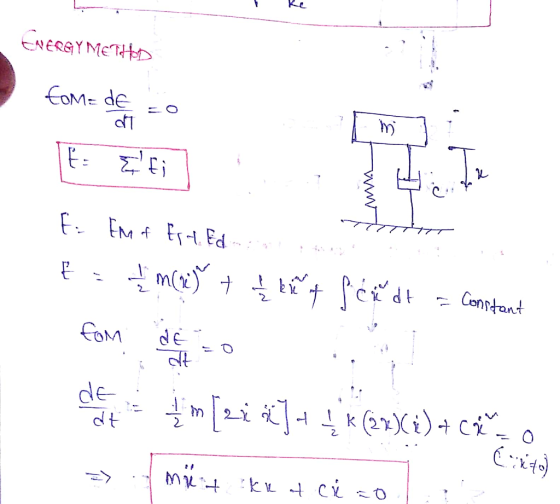 Ke
ENERGY METHOD
EOM = dE/dT = 0
E = Σ Ei
m
c
x
E = EM + Es + Ed
E = 1/2 m(ẋ)² + 1/2 kx² + ∫ cẋ² dt = Constant
EOM dE/dt = 0
dE/dt = 1/2 m [2ẋ ẍ] + 1/2 k (2x)(ẋ) + cẋ² = 0
(∵ ẋ≠0)
=> mẍ + kx + cẋ = 0